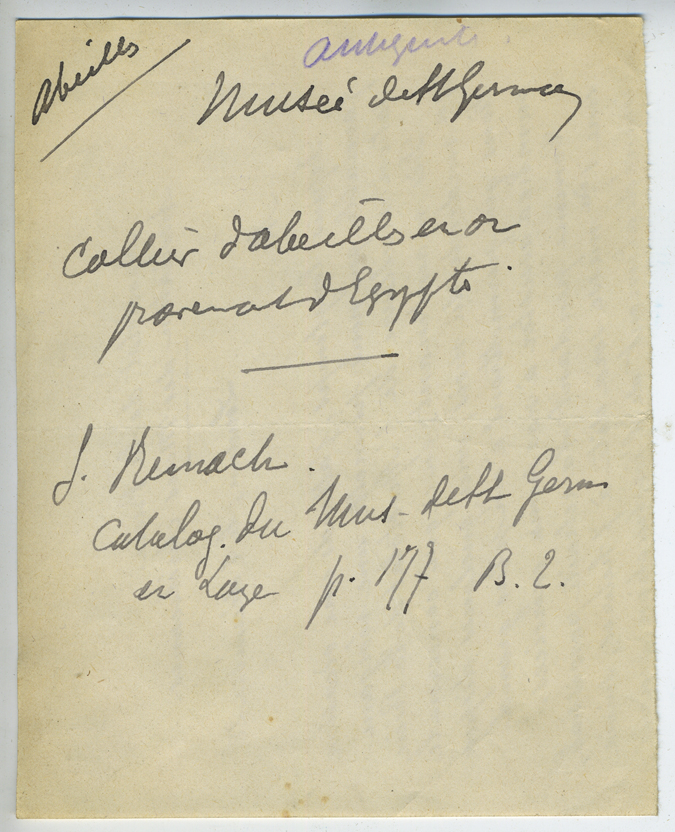 Abeilles
antiquité.
Musée de St Germain
Collier d'abeilles en or
provenant d'Egypte.
S. Reinach.
Catalog. du Mus. de St Germ
p. 177 B. 2.